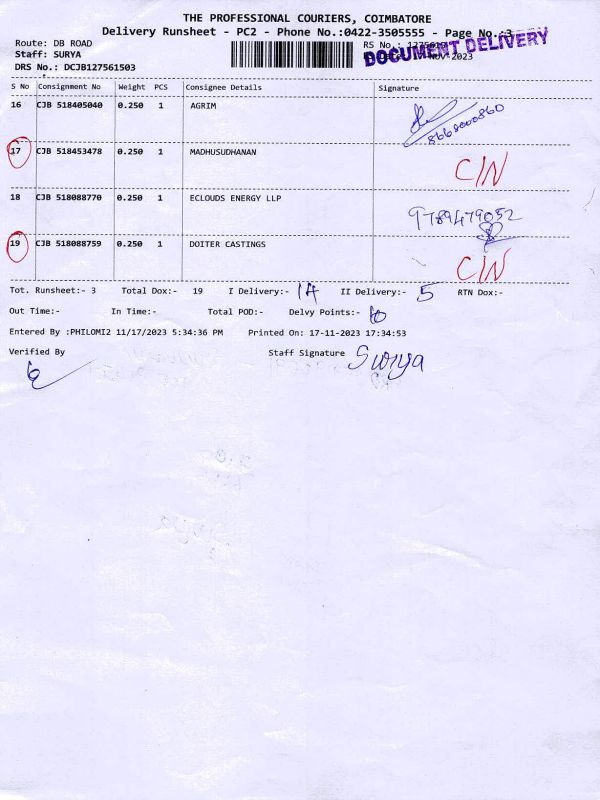 THE PROFESSIONAL COURIERS, COIMBATORE
Delivery Runsheet - PC2 - Phone No.:0422-3505555 - Page No.:3
Route: DB ROAD
Staff: SURYA
DRS No.: DCJB127561503
RS No.:
NOV-2023
DOCUMENT DELIVERY
S No Consignment No Weight PCS Consignee Details Signature
16 CJB 518405040 0.250 1 AGRIM
8668000860
17 CJB 518453478 0.250 1 MADHUSUDHANAN C/N
18 CJB 518088770 0.250 1 ECLOUDS ENERGY LLP 9789479052
19 CJB 518088759 0.250 1 DOITER CASTINGS C/N
Tot. Runsheet:- 3 Total Dox:- 19 I Delivery:- 14 II Delivery:- 5 RTN Dox:-
Out Time:- In Time:- Total POD:- Delvy Points:- 10
Entered By :PHILOMI2 11/17/2023 5:34:36 PM Printed On: 17-11-2023 17:34:53
Verified By Staff Signature Surya